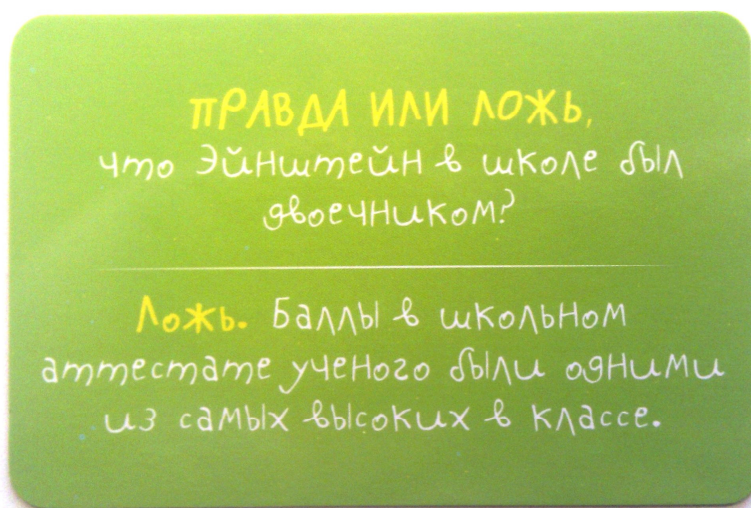 ПРАВДА ИЛИ ЛОЖЬ,
что Эйнштейн в школе был
двоечником?
Ложь. Баллы в школьном
аттестате ученого были одними
из самых высоких в классе.